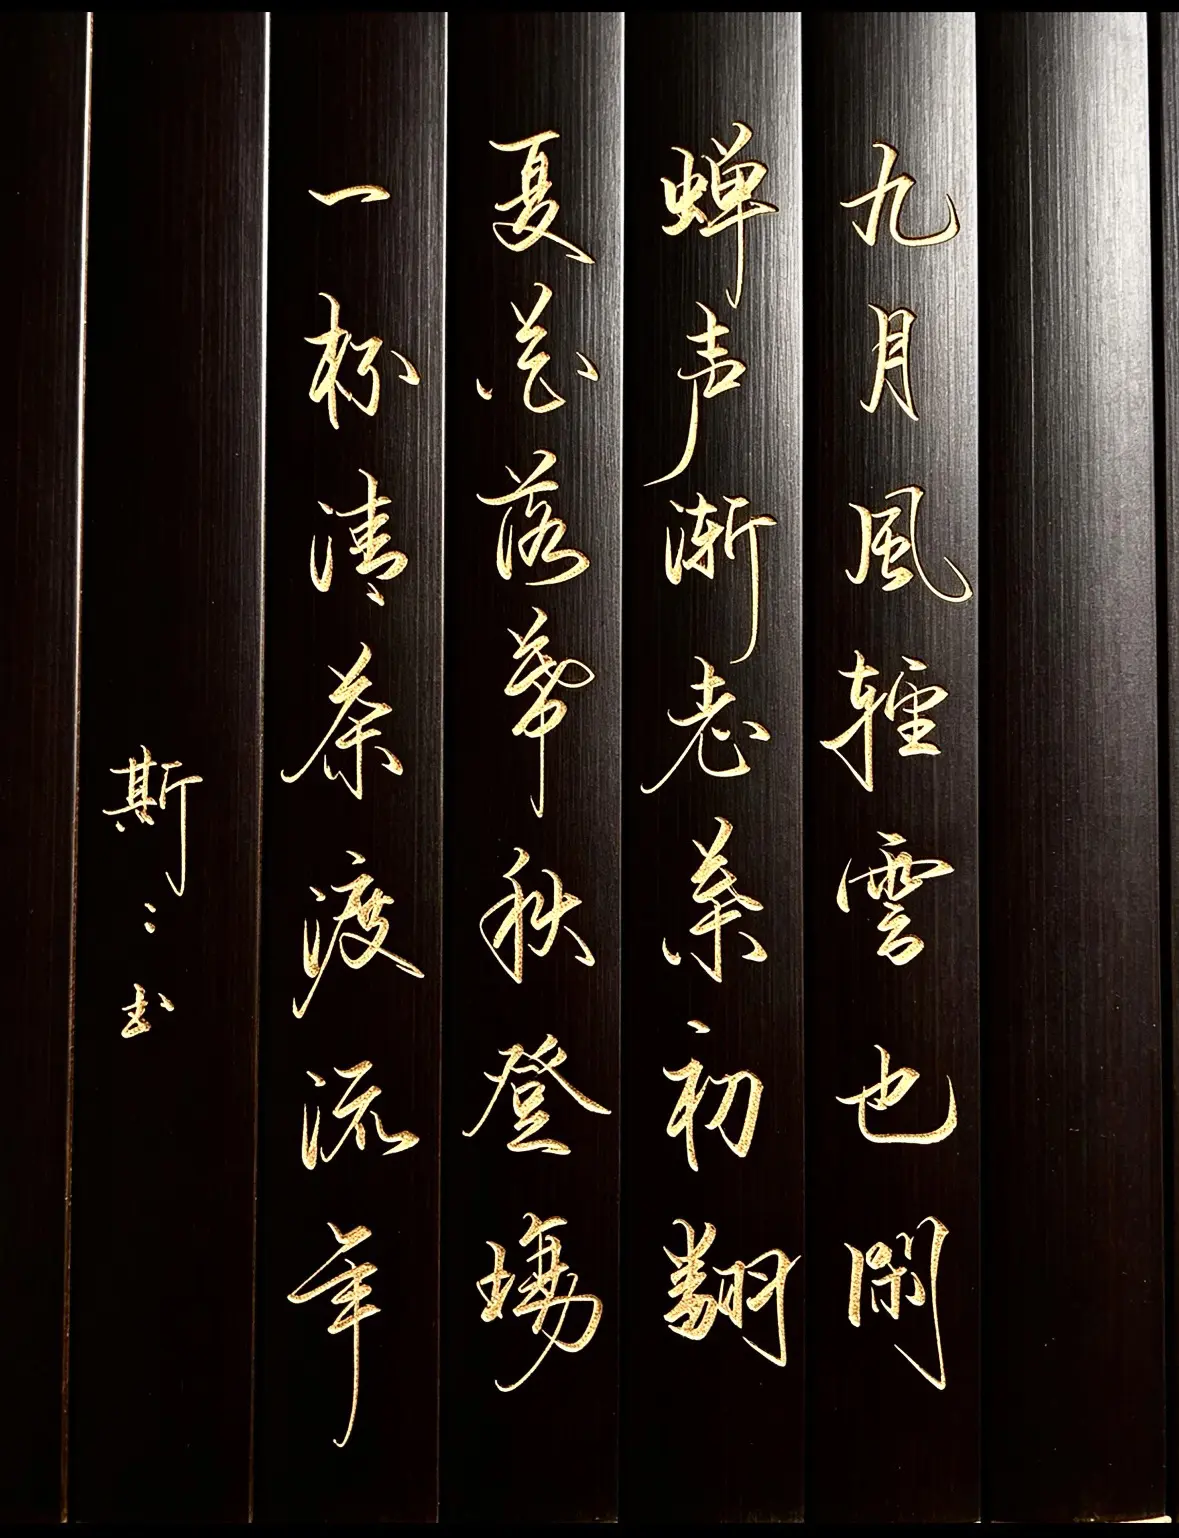 九月風輕雲也閑
蝉声渐老葉初翻
夏花落幕秋登場
一杯清茶渡流年
斯々书